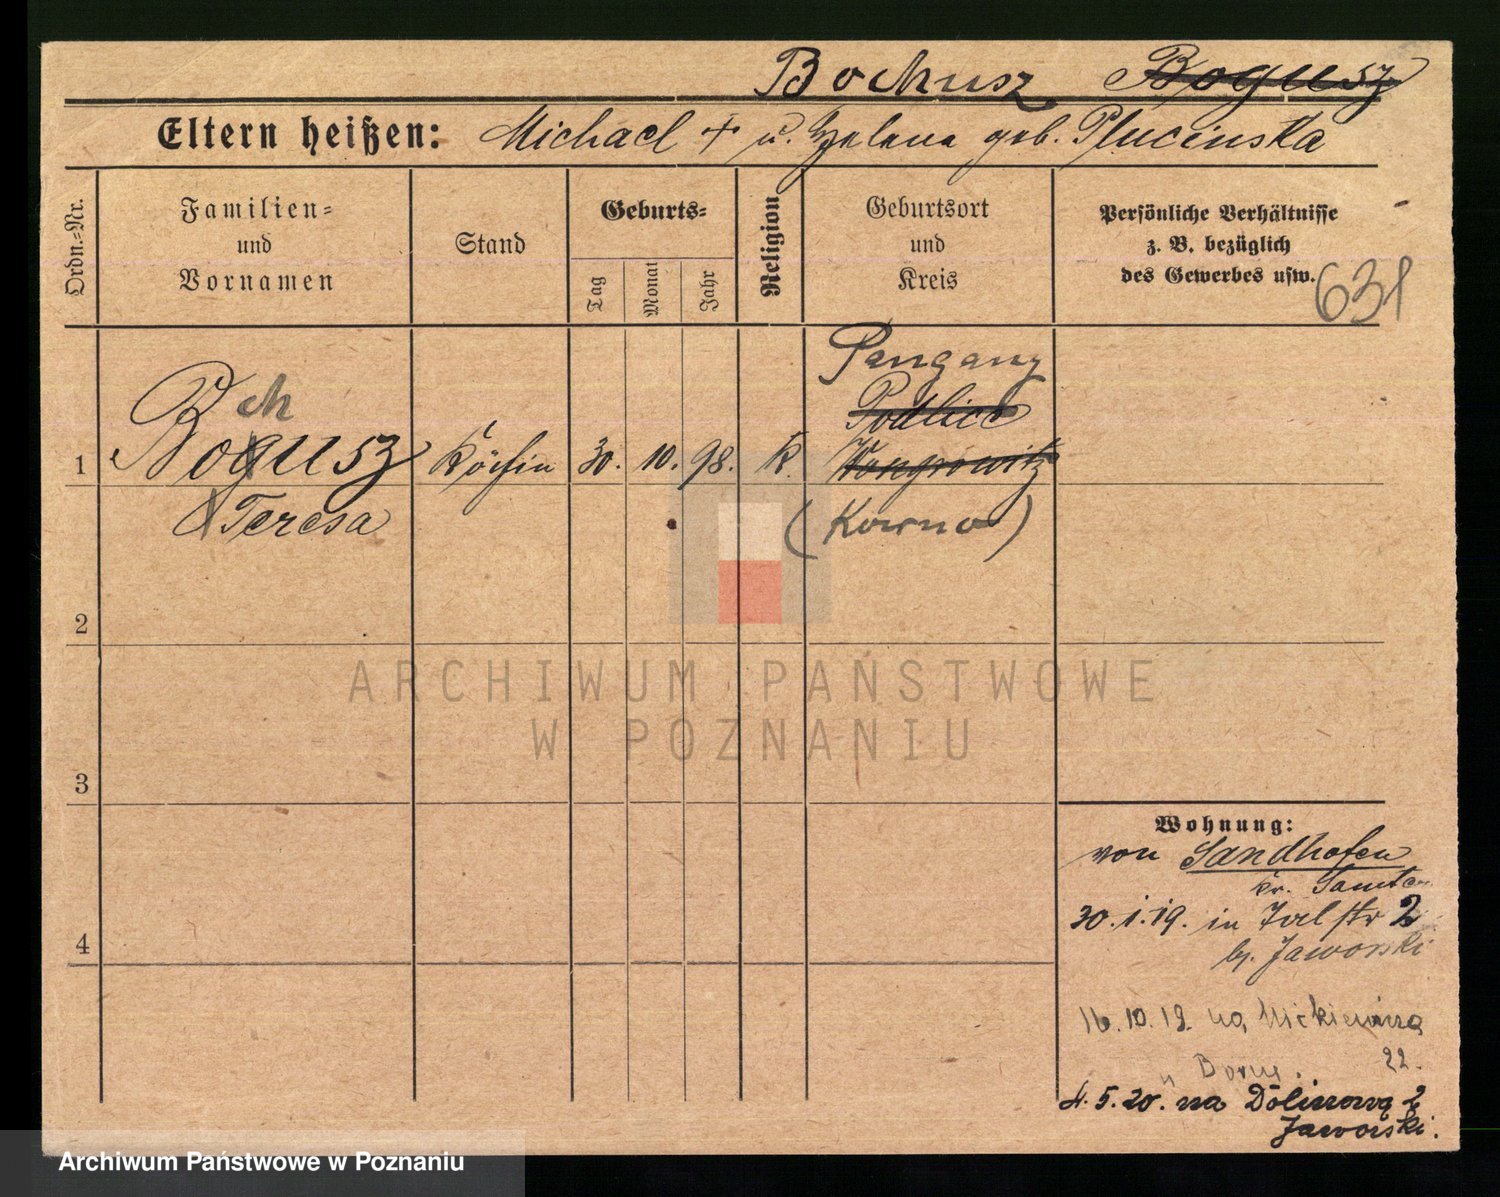 Bochusz Bogusz
Eltern heißen: Michael + u. Helena geb. Plucinska
Ordn.=Nr.
Familien=
und
Vornamen
Stand
Geburts=
Tag
Monat
Jahr
Religion
Geburtsort
und
Kreis
Persönliche Verhältnisse
z. B. bezüglich
des Gewerbes usw.
631
1
Bogusz
ch
Teresa
Köchin
30. 10. 98.
K.
Podlice
Wongrowitz
(Kowno)
2
3
4
Wohnung:
von Sandhofen
Kr. Samter
30.1.19. in Talstr 2
bj. Jaworski
16.10.19. na Mickiewicza
22.
u
4.5.20. na Dolinową 2
Jaworski.
ARCHIWUM PAŃSTWOWE
W POZNANIU
Archiwum Państwowe w Poznaniu